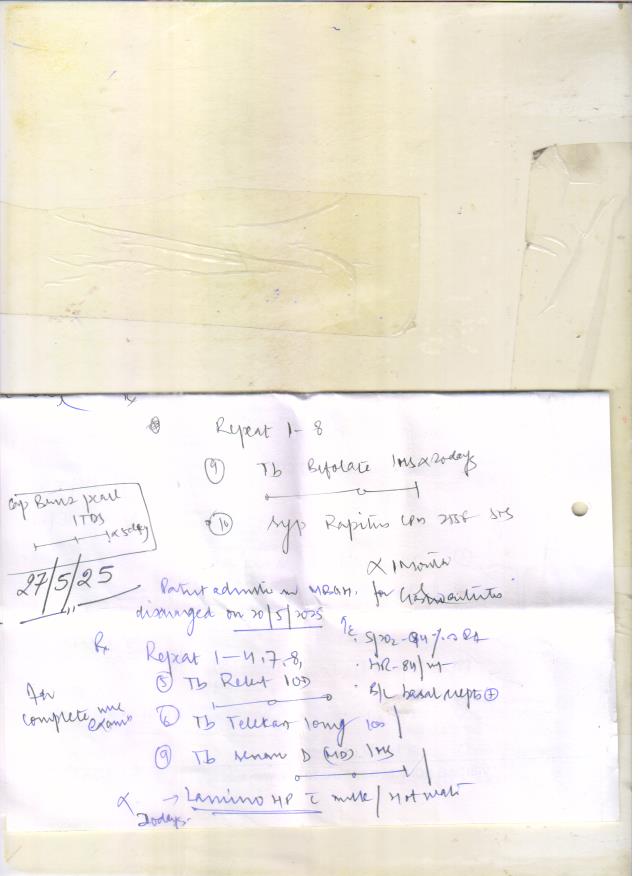 Rx
Repeat 1-8
(9) Tb Bifolate 1HS x 20days
(10) Syp Rapitus
Cap Benz pearl
1TDS
x 5 day
x 1 month
27/5/25
Patient admitted in for
discharged on 20/5/2025
Rx
O/E. SpO2-94% RA
Repeat 1-4,7,8,
HR-84/mt
(5) Tb 1OD
B/L basal crepts +
For
complete
exam
(6) Tb Telekast 10mg 1OD
(9) Tb D (MD) 1HS
x → Lamino HP c milk/Hot water
20days.